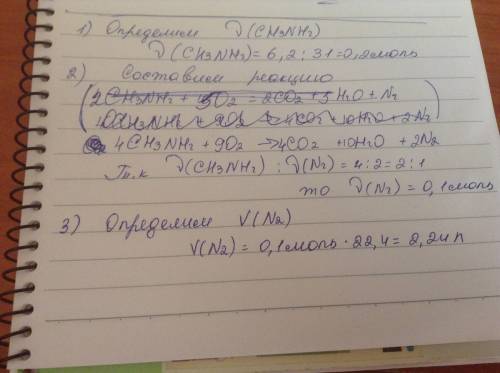 1) Определим ν(CH3NH2)
ν(CH3NH2) = 6,2 : 31 = 0,2 моль
2) Составим реакцию
2CH3NH2 + O2 = 2CO2 + 5H2O + N2
4CH3NH2 + 9O2 → 4CO2 + 10H2O + 2N2
Т.к ν(CH3NH2) : ν(N2) = 4:2 = 2:1
то ν(N2) = 0,1 моль
3) Определим V(N2)
V(N2) = 0,1 моль · 22,4 = 2,24 л